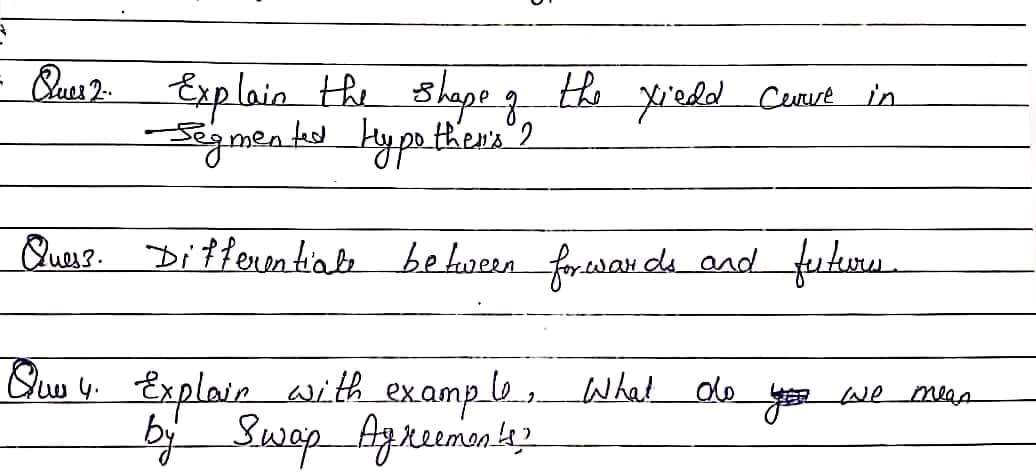 Ques 2. Explain the shape of the Yield Curve in
Segmented Hypothesis?
Ques 3. Differentiate between forwards and futures.
Ques 4. Explain with example, What do we mean
by Swap Agreements?